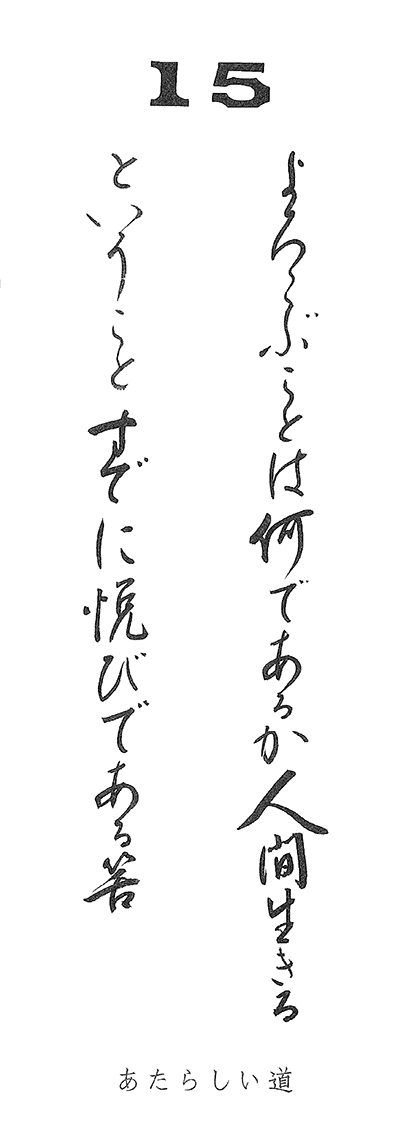 15
よろこぶことは何であるか人間生きる
ということすでに悦びである筈
あたらしい道